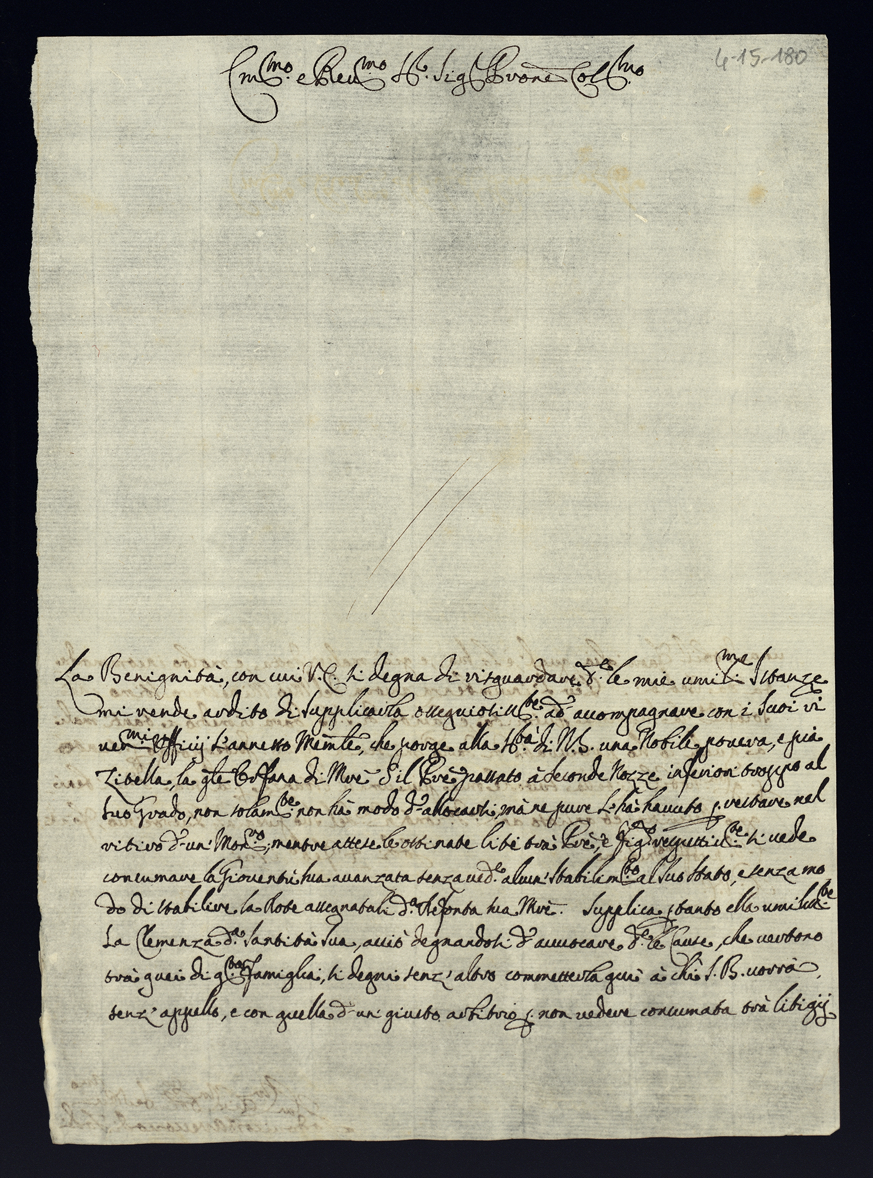 Em.mo e Reu.mo Sig.r Prone Col.mo
4-15-180
La Benignità, con cui V. E. si degna di risguardare le mie umil.me Istanze
mi rende ardito di supplicarla ossequiosiss.te ad accompagnare con i suoi ri
uer.mi Uffitij l'annesso Memle, che porge alla S.tà di N. S. una Nobile pouera, e già
Zitella, la qle Orfana di Mre, e il Pre passato à seconde Nozze inferiori troppo al
suo Grado, non solam.te non hà modo d'allocarsi, mà ne pure l'hà hauuto p. restare nel
ritiro d'un Mon.ro, mentre attese le ostinate lite trà Pre, e Fig.a respettiu.te si uede
consumare la Giouentù sua auanzata senza ued.e alcun' stabilim.to al suo stato, e senza mo
do di stabilire la Dote assegnatali d.a Defonta sua Mre. Supplica p.tanto ella umilm.te
La Clemenza d.a Santità Sua, acciò degnandosi d'auuocare d.e Cause, che uertono
trà quei di q.ta famiglia, si degni senz' altro commetterla quì à chi S. B. uorrà
senz' appello, e con quella d'un giusto arbitrio p. non uedere consumata trà litigij